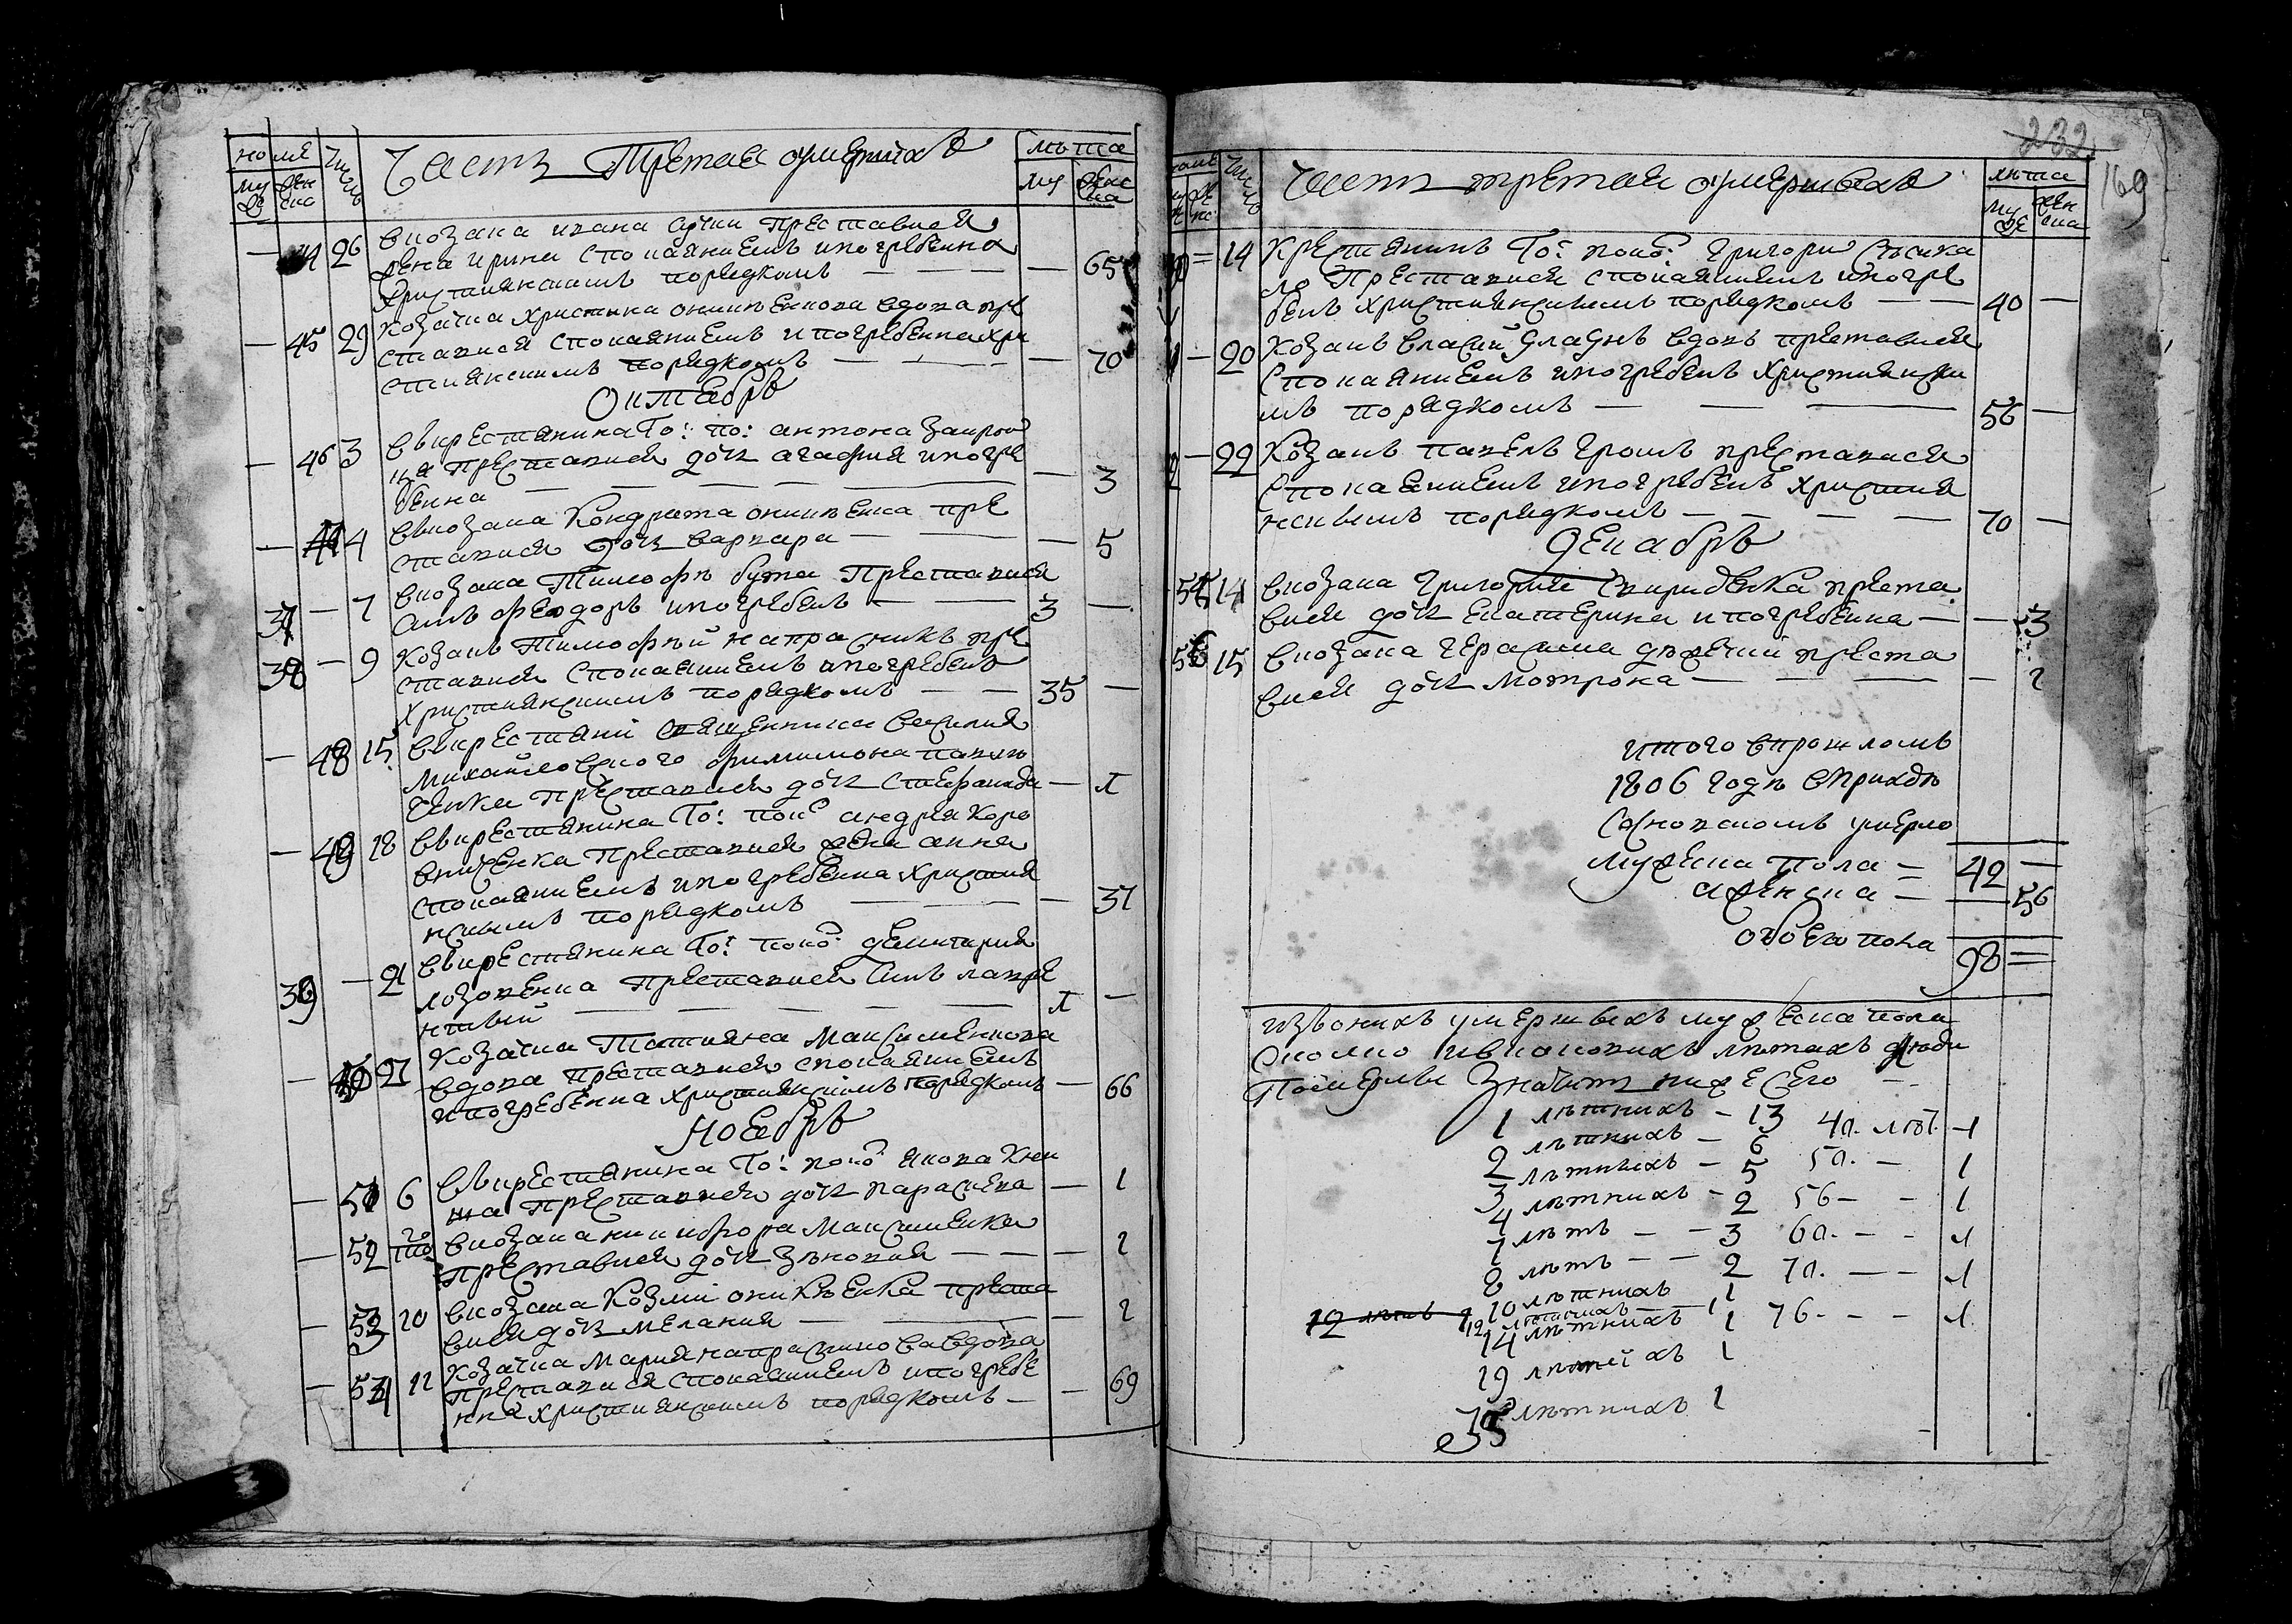 номѣ число Часть Третая умершихъ лѣта
му женска му женска
— 44 26 вкозака ивана сучки Преставися
жена ирина споканиемъ ипогребенна
християнскимъ порядкомъ — — — — 65
— 45 29 козачка христина вдова пре
стависа споканиемъ ипогребеннахри
стиянскимъ порядкомъ — — — 70
Октябрь
— 46 3 вкрестянина То: по: антона
Преставися дочь агафия ипогре
бенна — — — — 3
— 47 4 вкозака Кондрата оникѣенка пре
стависа дочь варвара — — — 5
37 — 7 вкозака Тимофѣ бута Преставися
синъ феодоръ ипогребенъ — 3 —
38 — 9 козакъ Тимофѣй напрасникъ пре
стависа споканиемъ ипогребенъ
християнскимъ порядкомъ — — 35 —
— 48 15 вкрестяни священника василия
михайловского филимона павлю
ченка преставися дочь стефанида — 1
— 49 18 вкрестянина То: поко: андрея коро
вниченка Преставися жена анна
споканиемъ ипогребенна християн
нскимъ порядкомъ — — — — 37
39 — 21 вкрестянина То: поко: демитрия
лозовенка Преставися синъ лавре
нтий — — — — 1 —
— 50 27 козачка Татияна Максименкова
вдова преставися споканиемъ
ипогребенна християнскимъ порядкомъ — 66
Ноебрь
— 51 6 вкрестянина То: поко: якова
Преставися дочь параскева — 1
— 52 вкозака никифора Максименка
Преставися дочь зѣновия — — — 2
— 53 10 вкозака Козми оникѣенка преста
вися дочь мелания — — 2
— 54 12 козачка Мария напрасникова вдова
Преставися споканиемъ ипогребе
нна християнскимъ порядкомъ — — 69
232
169
число Часть третая умершихъ лѣта
муже женска
= 14 Крестянинъ То: поко: григори
Преставися споканиемъ ипогре
бенъ християнскимъ порядкомъ — — 40 —
— 20 Козакъ власий вдовъ преставися
споканиемъ ипогребенъ християнски
мъ порядкомъ — — — 56 —
2 — 22 Козакъ павелъ громъ преставися
споканиемъ ипогребенъ християн
нскимъ порядкомъ — — — — 70 —
Декабрь
55 14 вкозака григория свириденка преста
вися дочь екатерина ипогребенна — — 3
56 15 вкозака герасима преста
вися дочь мотрона — — — — 2
итого впрошломъ
1806 годѣ вприходѣ
умерло
мужеска пола = 42 —
аженска — — 56
обоего пола
98 =
изъвонихъ умершихъ мужеска пола
сколко ивкаковихъ лѣтахъ люди
Померли значитъ нижесего —
1 лѣтнихъ — 13 40. лѣт. — 1
2 лѣтнихъ — 6 50. — 1
3 лѣтнихъ — 5 56 — — 1
4 лѣтнихъ — 2 60. — — 1
7 лѣтъ — — 3 70. — — 1
8 лѣтъ — — 2 76 — — — 1
10 лѣтнихъ 1
12 лѣтнихъ — 1
14 лѣтнихъ 1
19 лѣтнихъ 1
35 лѣтнихъ 1